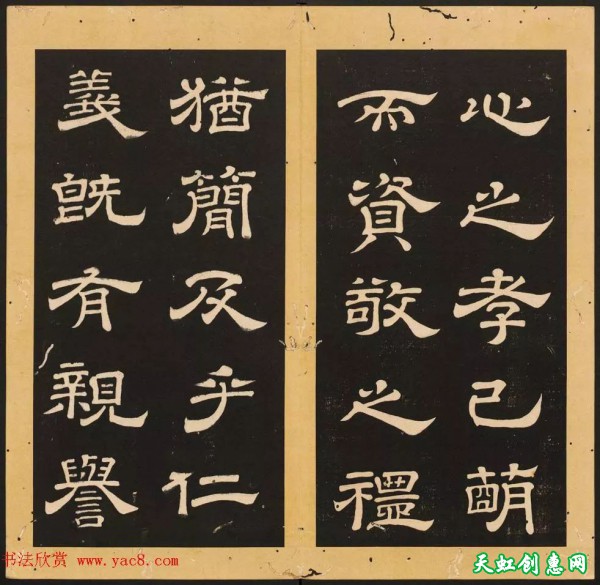 心之孝已萌
而資敬之禮
猶簡及乎仁
義既有親譽
书法欣赏 www.yac8.com
天虹创惠网